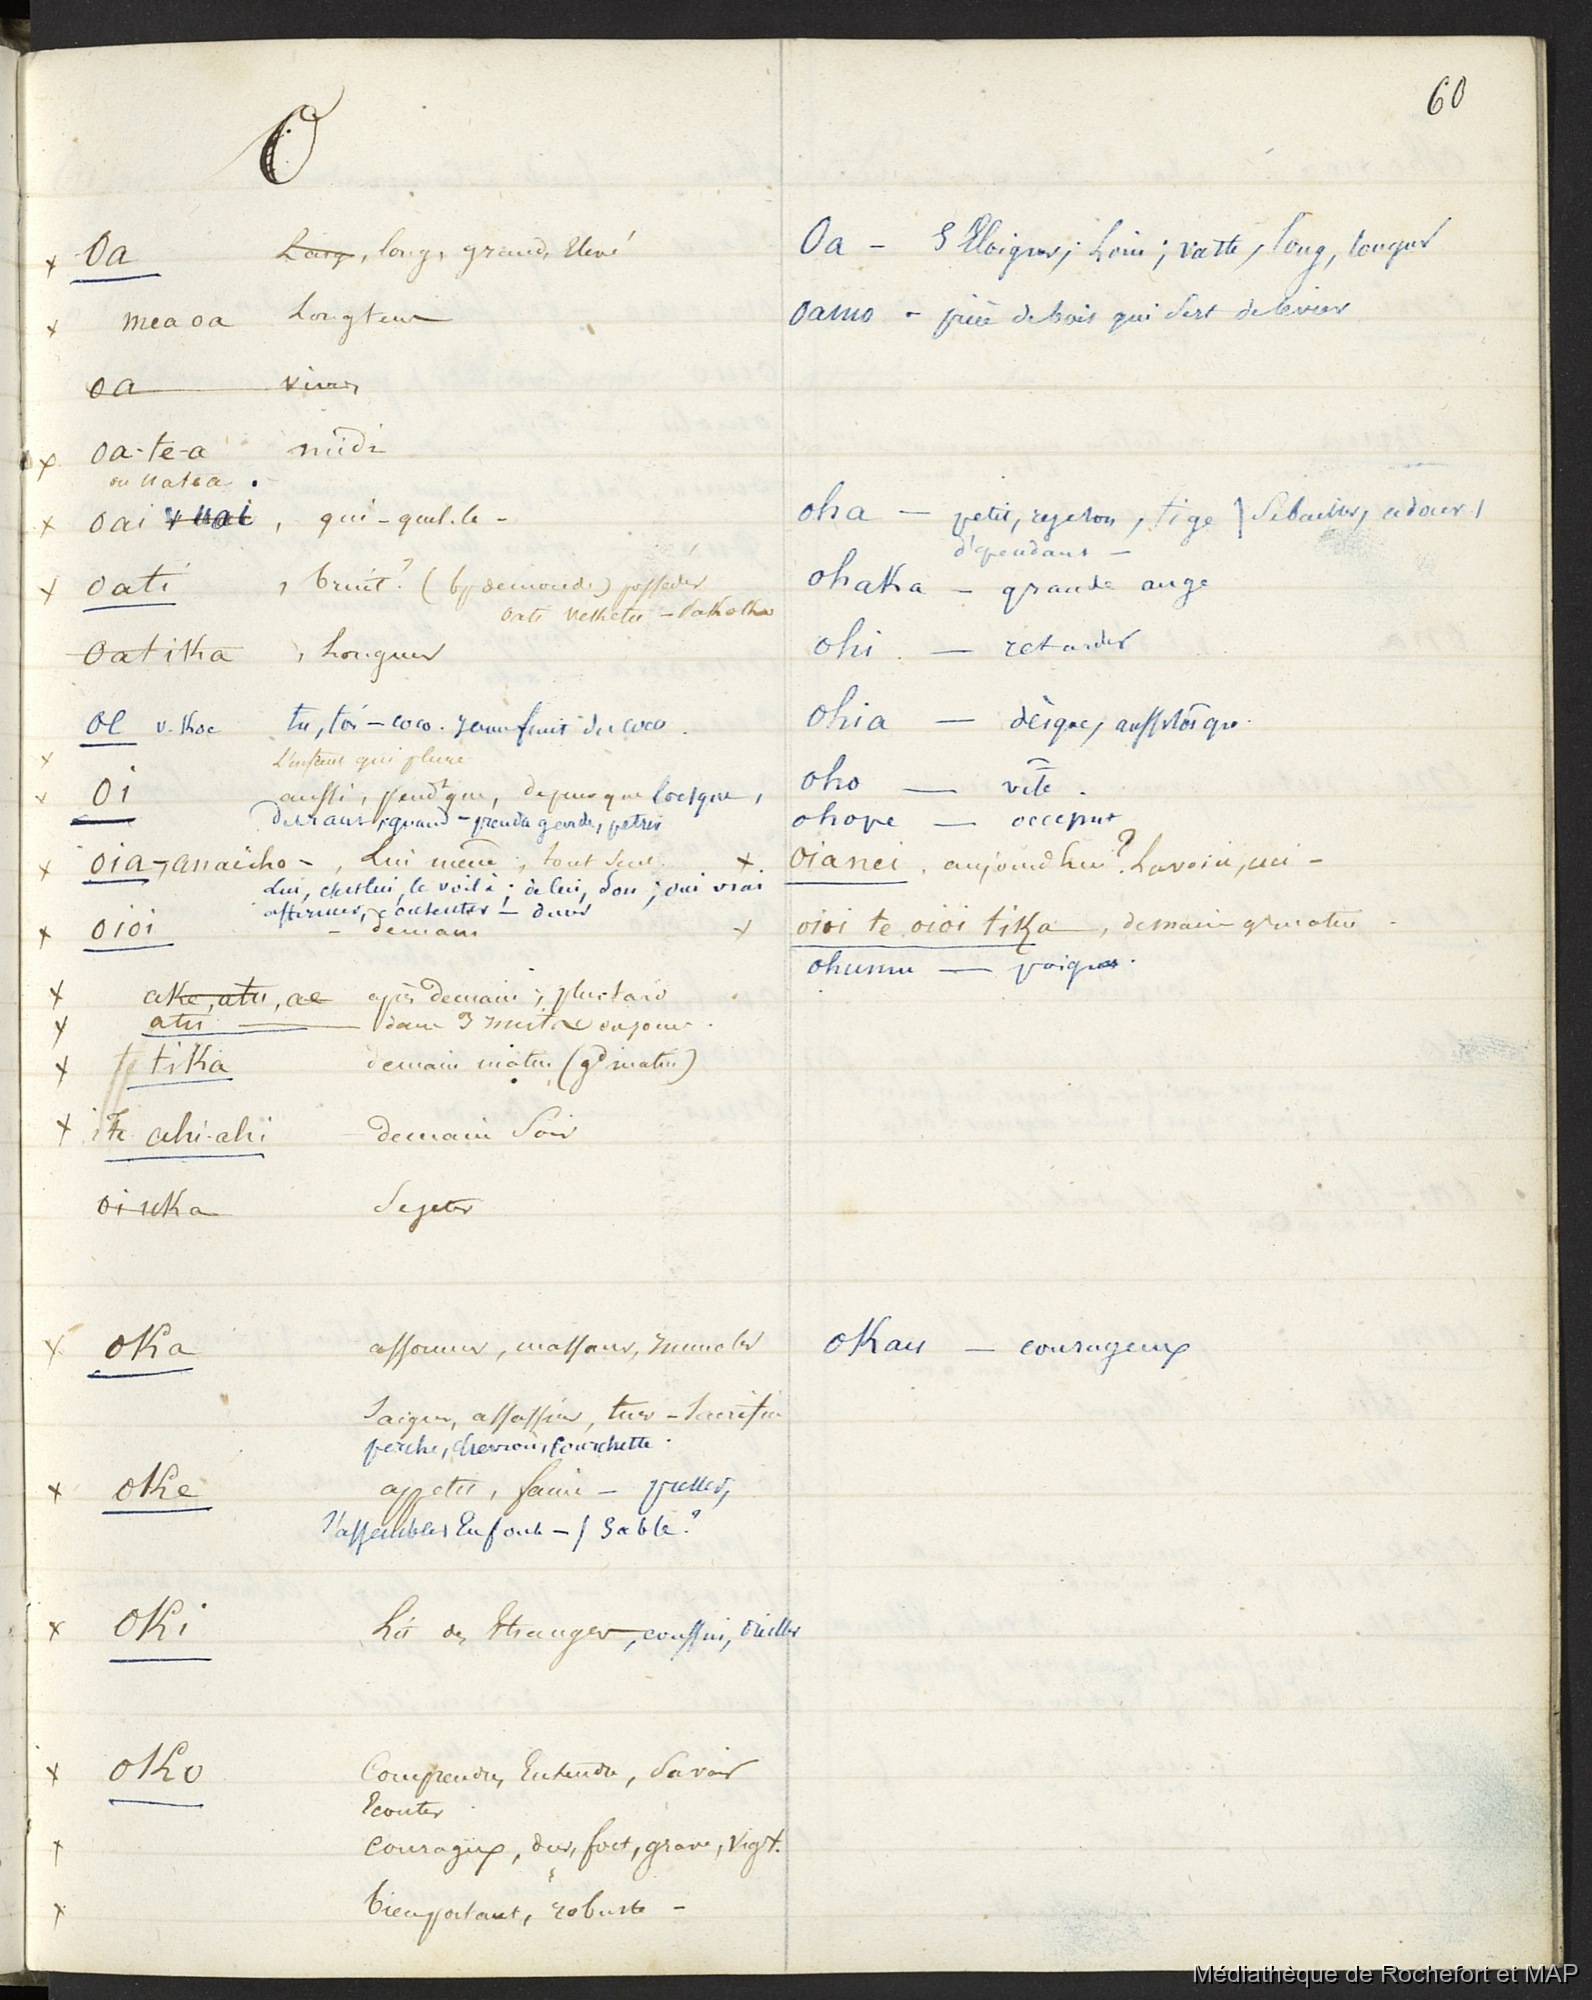 60
O
Oa Large, long, grand, Elevé
mea oa Longtems
oa vivres
oa-te-a midi
ou uatea.
oai v uai, qui - quel.le -
oati, bruit? ( ) posseder
oati
oatika, Longueur
oe v. Koe tu, toi - coco. jeune fruit du coco.
L'enfant qui pleure
oi aussi, pendt que, depuis que lorsque,
devant, quand - prendre garde, petrir
oia, anaeiho -, Lui même, tout seul.
Lui, c'est lui, le voilà; à lui, son; oui vrai
affirmer, consentir -
oioi - demain
ake, atu, ae après demain; plus tard
atu dans 3 nuits ou jours.
te tika demain matin (gd matin)
te ahi-ahi demain soir
oi uka Se jeter
oka assommer, massacrer, immoler
Saigner, assassiner, tuer - Sacrifier
perche, chevron, fourchette.
oke appetit, faim -
S'assembler En foule - / Sable?
oki Lit des Etrangers, coussin, oreiller
oko Comprendre, Entendre, Savoir
Ecouter
courageux, dur, fort, grave, vigt.
bien portant, robuste -
Oa - S'Eloigner; Loin; vaste, long, longueur
oamo - pièce de bois qui sert de levier
oha - petit, rejeton, tige
ohaka - grande auge
ohi - retarder
ohia - dès que, aussitôt que.
oho - vite.
ohope - occiput
oianei, aujourd'hui?
oioi te oioi tika, demain gd matin -
ohumu -
okau - courageux
Médiathèque de Rochefort et MAP